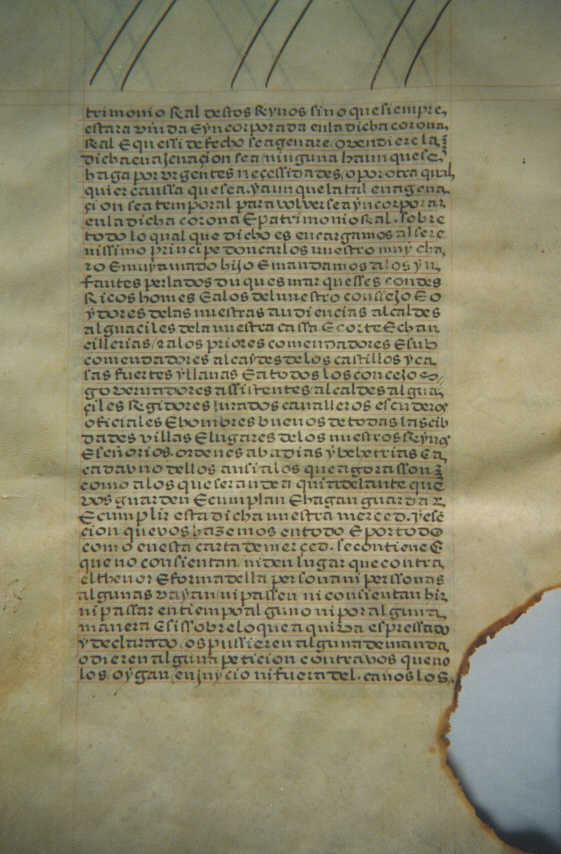 trimonio Real destos Reynos sino que siempre,
estara vnida E yncorporada enla dicha corona,
Real E que si de fecho se agenare, o vendiere la
dicha enajenaçion sea ninguna haun que se,
haga por vrgentes neçessidades, o por otra qual,
quier caussa que sea. y aun que la tal enagena,
çion sea temporal para volverse a yncorporar,
enla dicha corona E patrimonio Real. sobre
todo lo qual que dicho es encargamos al sere
nissimo prinçipe don carlos nuestro muy cha,
ro E muy amado hijo E mandamos a los yn,
fantes perlados duques marquesses condes
Ricos homes E a los del nuestro consejo E o
ydores delas nuestras audiencias alcaldes
alguaciles dela nuestra cassa E corte E chan
cillerias, E a los priores comendadores E sub
comendadores alcaydes de los castillos y ca,
sas fuertes y llanas E a todos los concejos
governadores assistentes alcaldes algua,
çiles Regidores Jurados cavalleros escuderos
ofiçiales E hombres buenos de todas las cib
dades villas E lugares de los nuestros Reynos
E señorios. ordenes abadias y behetrias E a
cada vno dellos ansi a los que agora son
como a los que seran de a qui adelante que
vos guarden E cumplan E hagan guardar
E cumplir esta dicha nuestra merced. y ese
cion que vos hazemos en todo E por todo
como en esta carta de merced. se contiene E
que no consientan. ni den lugar que contra
el thenor E forma della persona ni perssonas
algunas vayan ni passen ni consientan hir,
ni passar en tiempo alguno ni por alguna,
manera E si ssobre lo que a qui va espressado
y declarado, os pussieren alguna demanda
o dieren alguna peticion contra vos que no
los oygan, en juycio ni fuera del. ca nos los.